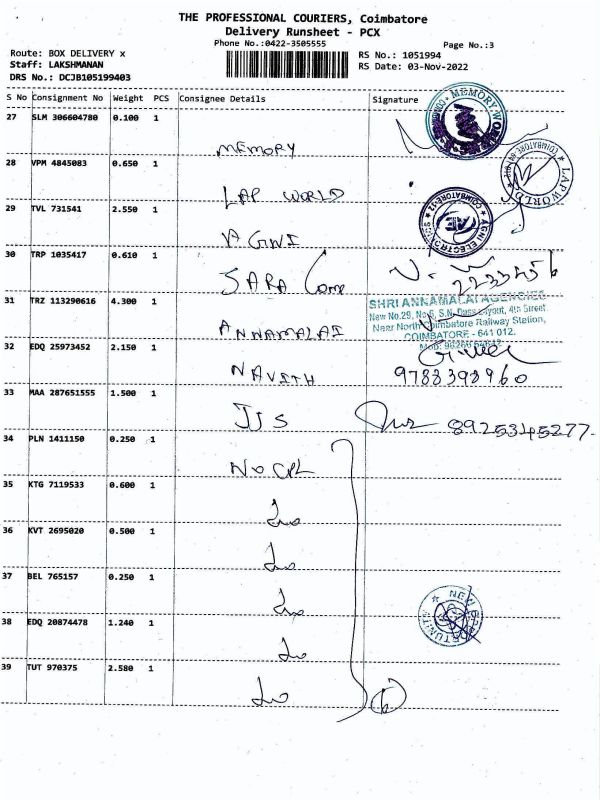 THE PROFESSIONAL COURIERS, Coimbatore
Delivery Runsheet - PCX
Phone No.:0422-3505555
Page No.:3
Route: BOX DELIVERY x
RS No.: 1051994
Staff: LAKSHMANAN
RS Date: 03-Nov-2022
DRS No.: DCJB105199403
S No Consignment No Weight PCS Consignee Details Signature
27 SLM 306604780 0.100 1
MEMORY
28 VPM 4845083 0.650 1
LAP WORLD
LAP WORLD
29 TVL 731541 2.550 1
AGNI
AGNI ELECTRO
30 TRP 1035417 0.610 1
SARA Come
2233456
31 TRZ 113290616 4.300 1
SHRI ANNAMALAI AGENCIES
New No.29, No.6, S.N. Dass Layout, 4th Street
Near North Coimbatore Railway Station,
COIMBATORE - 641 012.
ANNAMALAI
32 EDQ 25973452 2.150 1
NAVITH
9788398960
33 MAA 287651555 1.500 1
JJS
8925345277
34 PLN 1411150 0.250 1
NO CPL
35 KTG 7119533 0.600 1
36 KVT 2695020 0.500 1
37 BEL 765157 0.250 1
38 EDQ 20874478 1.240 1
39 TUT 970375 2.580 1